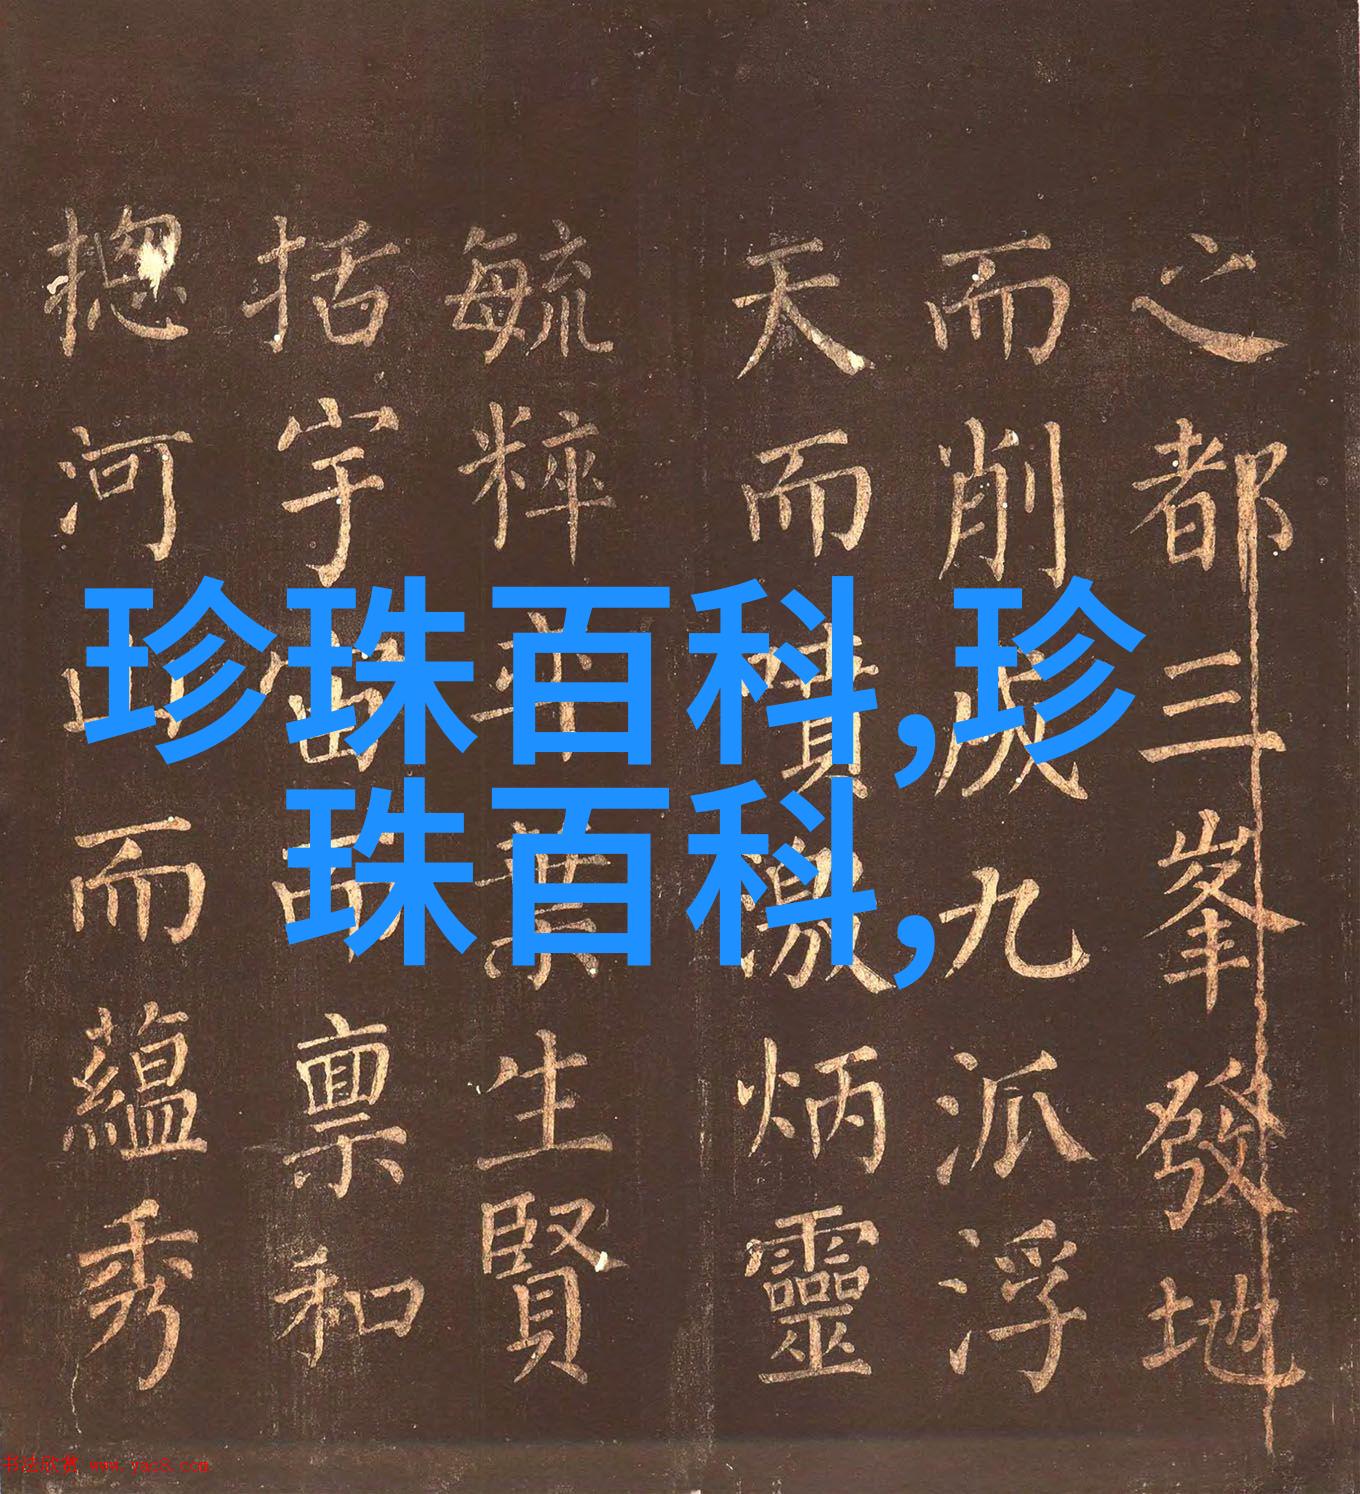 珍珠百科,珍
珠百科,
之都三峯發地
而削成九派浮
天而激炳靈
毓粹葉生賢
括宇宙而禀和
揔河山而蘊秀
书法欣赏 www.yac8.com